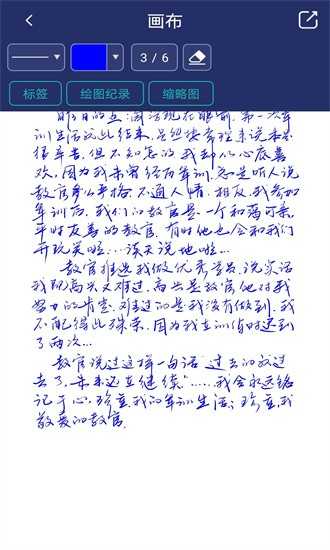 画布
3 / 6
标签 绘图纪录 缩略图
训生活就此结束。虽然按常理来说本应
很辛苦,但不知怎的我却从心底喜
欢,因为我未曾经历军训,总是听人说
教官多么严格,不通人情。相反,我参加
军训后,我们的教官是一个和蔼可亲,
平时友善的教官,有时他也会和我们
开玩笑啦……谈天说地啦…
教官推选我做优秀学员,说实话
我既高兴又难过,高兴是教官他对我
努力的肯定,难过的是我没有做到,我
不配得此殊荣,因为我在训练时迟到
了两次…
教官说过这样一句话"过去的放过
去了,未来还在继续"……我会永远铭
记于心。珍重,我的军训生活;珍重,我
敬爱的教官。